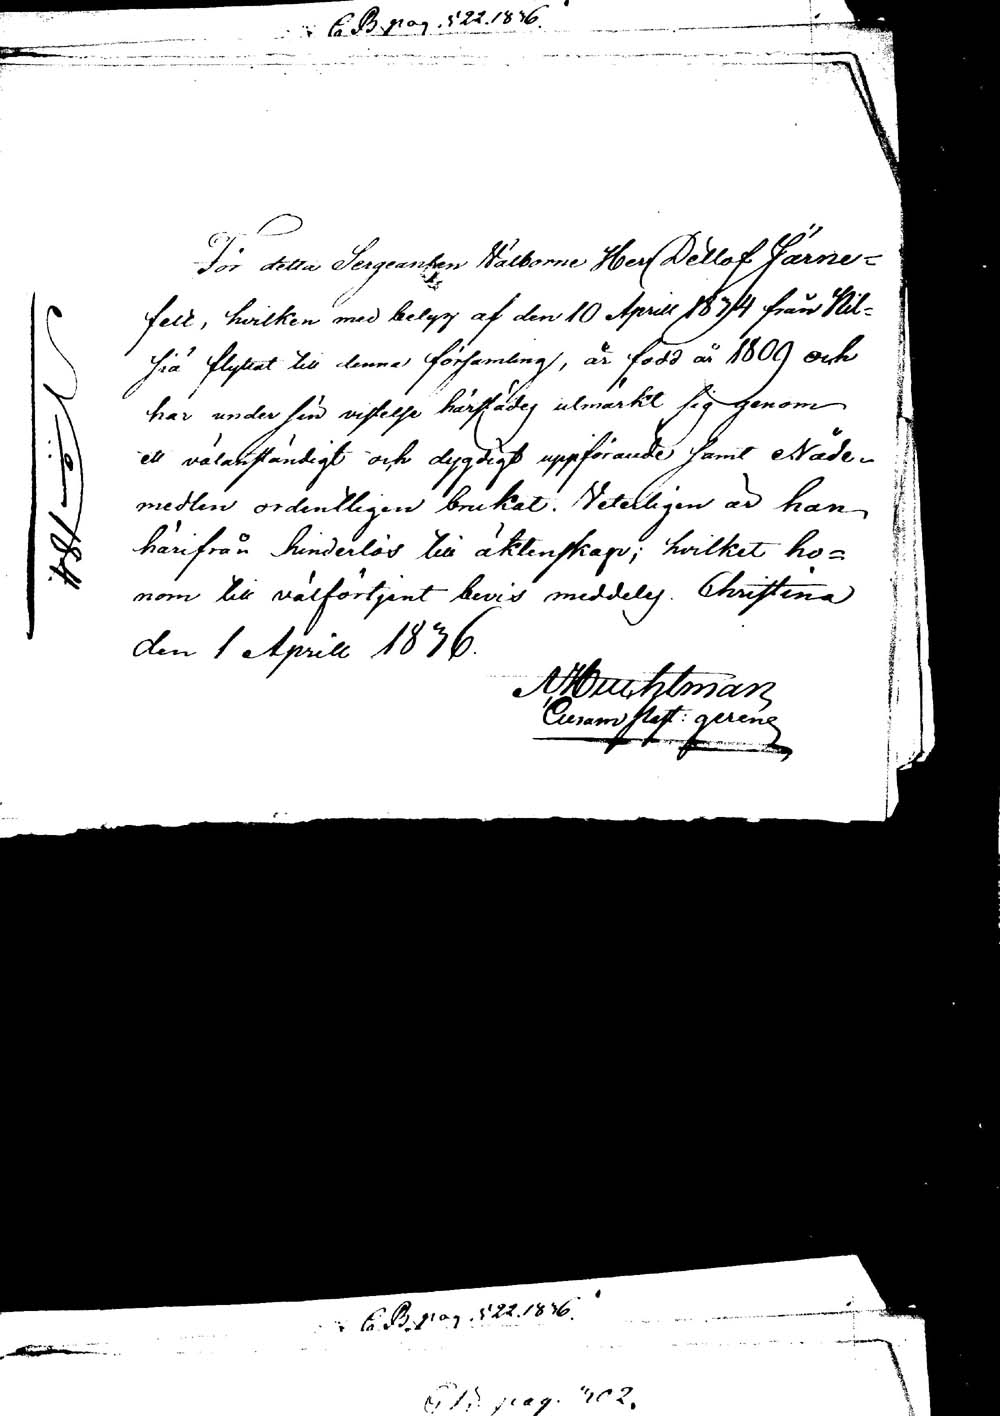 C B. pag. 522. 1836.
För detta Sergeanten Wälborne Herr Detlof Järne=
felt, hvilken med betyg af den 10 Aprill 1834 från Nil=
siä flyttat till denna församling, är född år 1809 och
har under sin vistelse härstädes utmärkt sig genom
ett välanständigt och dygdigt uppförande samt Nåde-
medlen ordentligen brukat. Veterligen är han
härifrån hinderlös till äktenskap; hvilket ho=
nom till välförtjent bevis meddeles. Christina
den 1 Aprill 1836.
past: gerens
C B. pag. 522. 1836.
pag. 702.